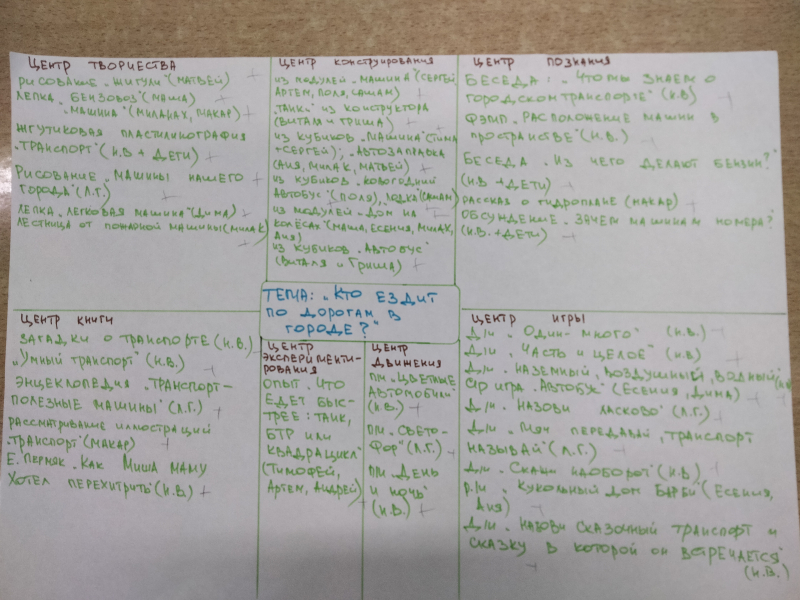 ЦЕНТР ТВОРЧЕСТВА
РИСОВАНИЕ „ЖИГУЛИ“ (МАТВЕЙ) +
ЛЕПКА „БЕНЗОВОЗ“ (МАША) +
„МАШИНА“ (МИЛАНАК, МАКАР) +
ЖГУТИКОВАЯ ПЛАСТИЛИНОГРАФИЯ
„ТРАНСПОРТ“ (И.В + ДЕТИ) +
РИСОВАНИЕ „МАШИНЫ НАШЕГО
ГОРОДА“ (Л.Г.) +
ЛЕПКА „ЛЕГКОВАЯ МАШИНА“ (ДИМА) +
ЛЕСТНИЦА ОТ ПОЖАРНОЙ МАШИНЫ (МИЛАК) +
ЦЕНТР КОНСТРУИРОВАНИЯ
ИЗ МОДУЛЕЙ „МАШИНА“ (СЕРГЕЙ
АРТЕМ, ПОЛЯ, САШАМ) +
„ТАНК“ ИЗ КОНСТРУКТОРА
(ВИТАЛЯ И ГРИША) +
ИЗ КУБИКОВ „МАШИНА“ (ТИМА
+ СЕРГЕЙ); „АВТОЗАПРАВКА
(АИЯ, МИЛАК, МАТВЕЙ) +
ИЗ КУБИКОВ „НОВОГОДНИЙ
АВТОБУС“ (ПОЛЯ), ЛОДКА (САШАМ)
ИЗ МОДУЛЕЙ „ДОМ НА
КОЛЁСАХ“ (МАША, ЕСЕНИЯ, МИЛАК,
АИЯ) +
ИЗ КУБИКОВ „АВТОБУС“
(ВИТАЛЯ И ГРИША) +
ЦЕНТР ПОЗНАНИЯ
БЕСЕДА: „ЧТО МЫ ЗНАЕМ О
ГОРОДСКОМ ТРАНСПОРТЕ“ (И.В) +
ФЭМП „РАСПОЛОЖЕНИЕ МАШИН В
ПРОСТРАНСТВЕ“ (И.В.) +
БЕСЕДА „ИЗ ЧЕГО ДЕЛАЮТ БЕНЗИН?“
(И.В + ДЕТИ) +
РАССКАЗ О ГИДРОПЛАНЕ (МАКАР) +
ОБСУЖДЕНИЕ „ЗАЧЕМ МАШИНАМ НОМЕРА?
(И.В. + ДЕТИ) +
ТЕМА: „КТО ЕЗДИТ
ПО ДОРОГАМ В
ГОРОДЕ?“
ЦЕНТР КНИГИ
ЗАГАДКИ О ТРАНСПОРТЕ (И.В.) +
„УМНЫЙ ТРАНСПОРТ“ (И.В.) +
ЭНЦЕКЛОПЕДИЯ „ТРАНСПОРТ –
ПОЛЕЗНЫЕ МАШИНЫ“ (Л.Г.) +
РАССМАТРИВАНИЕ ИЛЛЮСТРАЦИЙ
„ТРАНСПОРТ“ (МАКАР) +
Е. ПЕРМЯК „КАК МИША МАМУ
ХОТЕЛ ПЕРЕХИТРИТЬ“ (И.В.) +
ЦЕНТР
ЭКСПЕРИМЕНТИ-
РОВАНИЯ
ОПЫТ „ЧТО
ЕДЕТ БЫС-
ТРЕЕ: ТАНК,
БТР ИЛИ
КВАДРАЦИКЛ“
(ТИМОФЕЙ,
АРТЕМ, АНДРЕЙ) +
ЦЕНТР
ДВИЖЕНИЯ
ПИ „ЦВЕТНЫЕ
АВТОМОБИЛИ“
(И.В.) +
ПИ „СВЕТО-
ФОР“ (Л.Г.) +
ПИ „ДЕНЬ
И НОЧЬ“
(И.В.) +
ЦЕНТР ИГРЫ
Д/И „ОДИН-МНОГО“ (И.В.) +
Д/И „ЧАСТЬ И ЦЕЛОЕ“ (И.В) +
Д/И „НАЗЕМНЫЙ, ВОЗДУШНЫЙ, ВОДНЫЙ“
С/Р ИГРА „АВТОБУС“ (ЕСЕНИЯ, ДИМА) +
Д/И „НАЗОВИ ЛАСКОВО“ (Л.Г.) +
Д/И „МЯЧ ПЕРЕДАВАЙ, ТРАНСПОРТ
НАЗЫВАЙ“ (Л.Г.) +
Д/И „СКАЖИ НАОБОРОТ“ (И.В) +
Р/И „КУКОЛЬНЫЙ ДОМ БАРБИ“ (ЕСЕНИЯ,
АИЯ) +
Д/И „НАЗОВИ СКАЗОЧНЫЙ ТРАНСПОРТ И
СКАЗКУ В КОТОРОЙ ОН ВСТРЕЧАЕТСЯ“
(И.В.) +